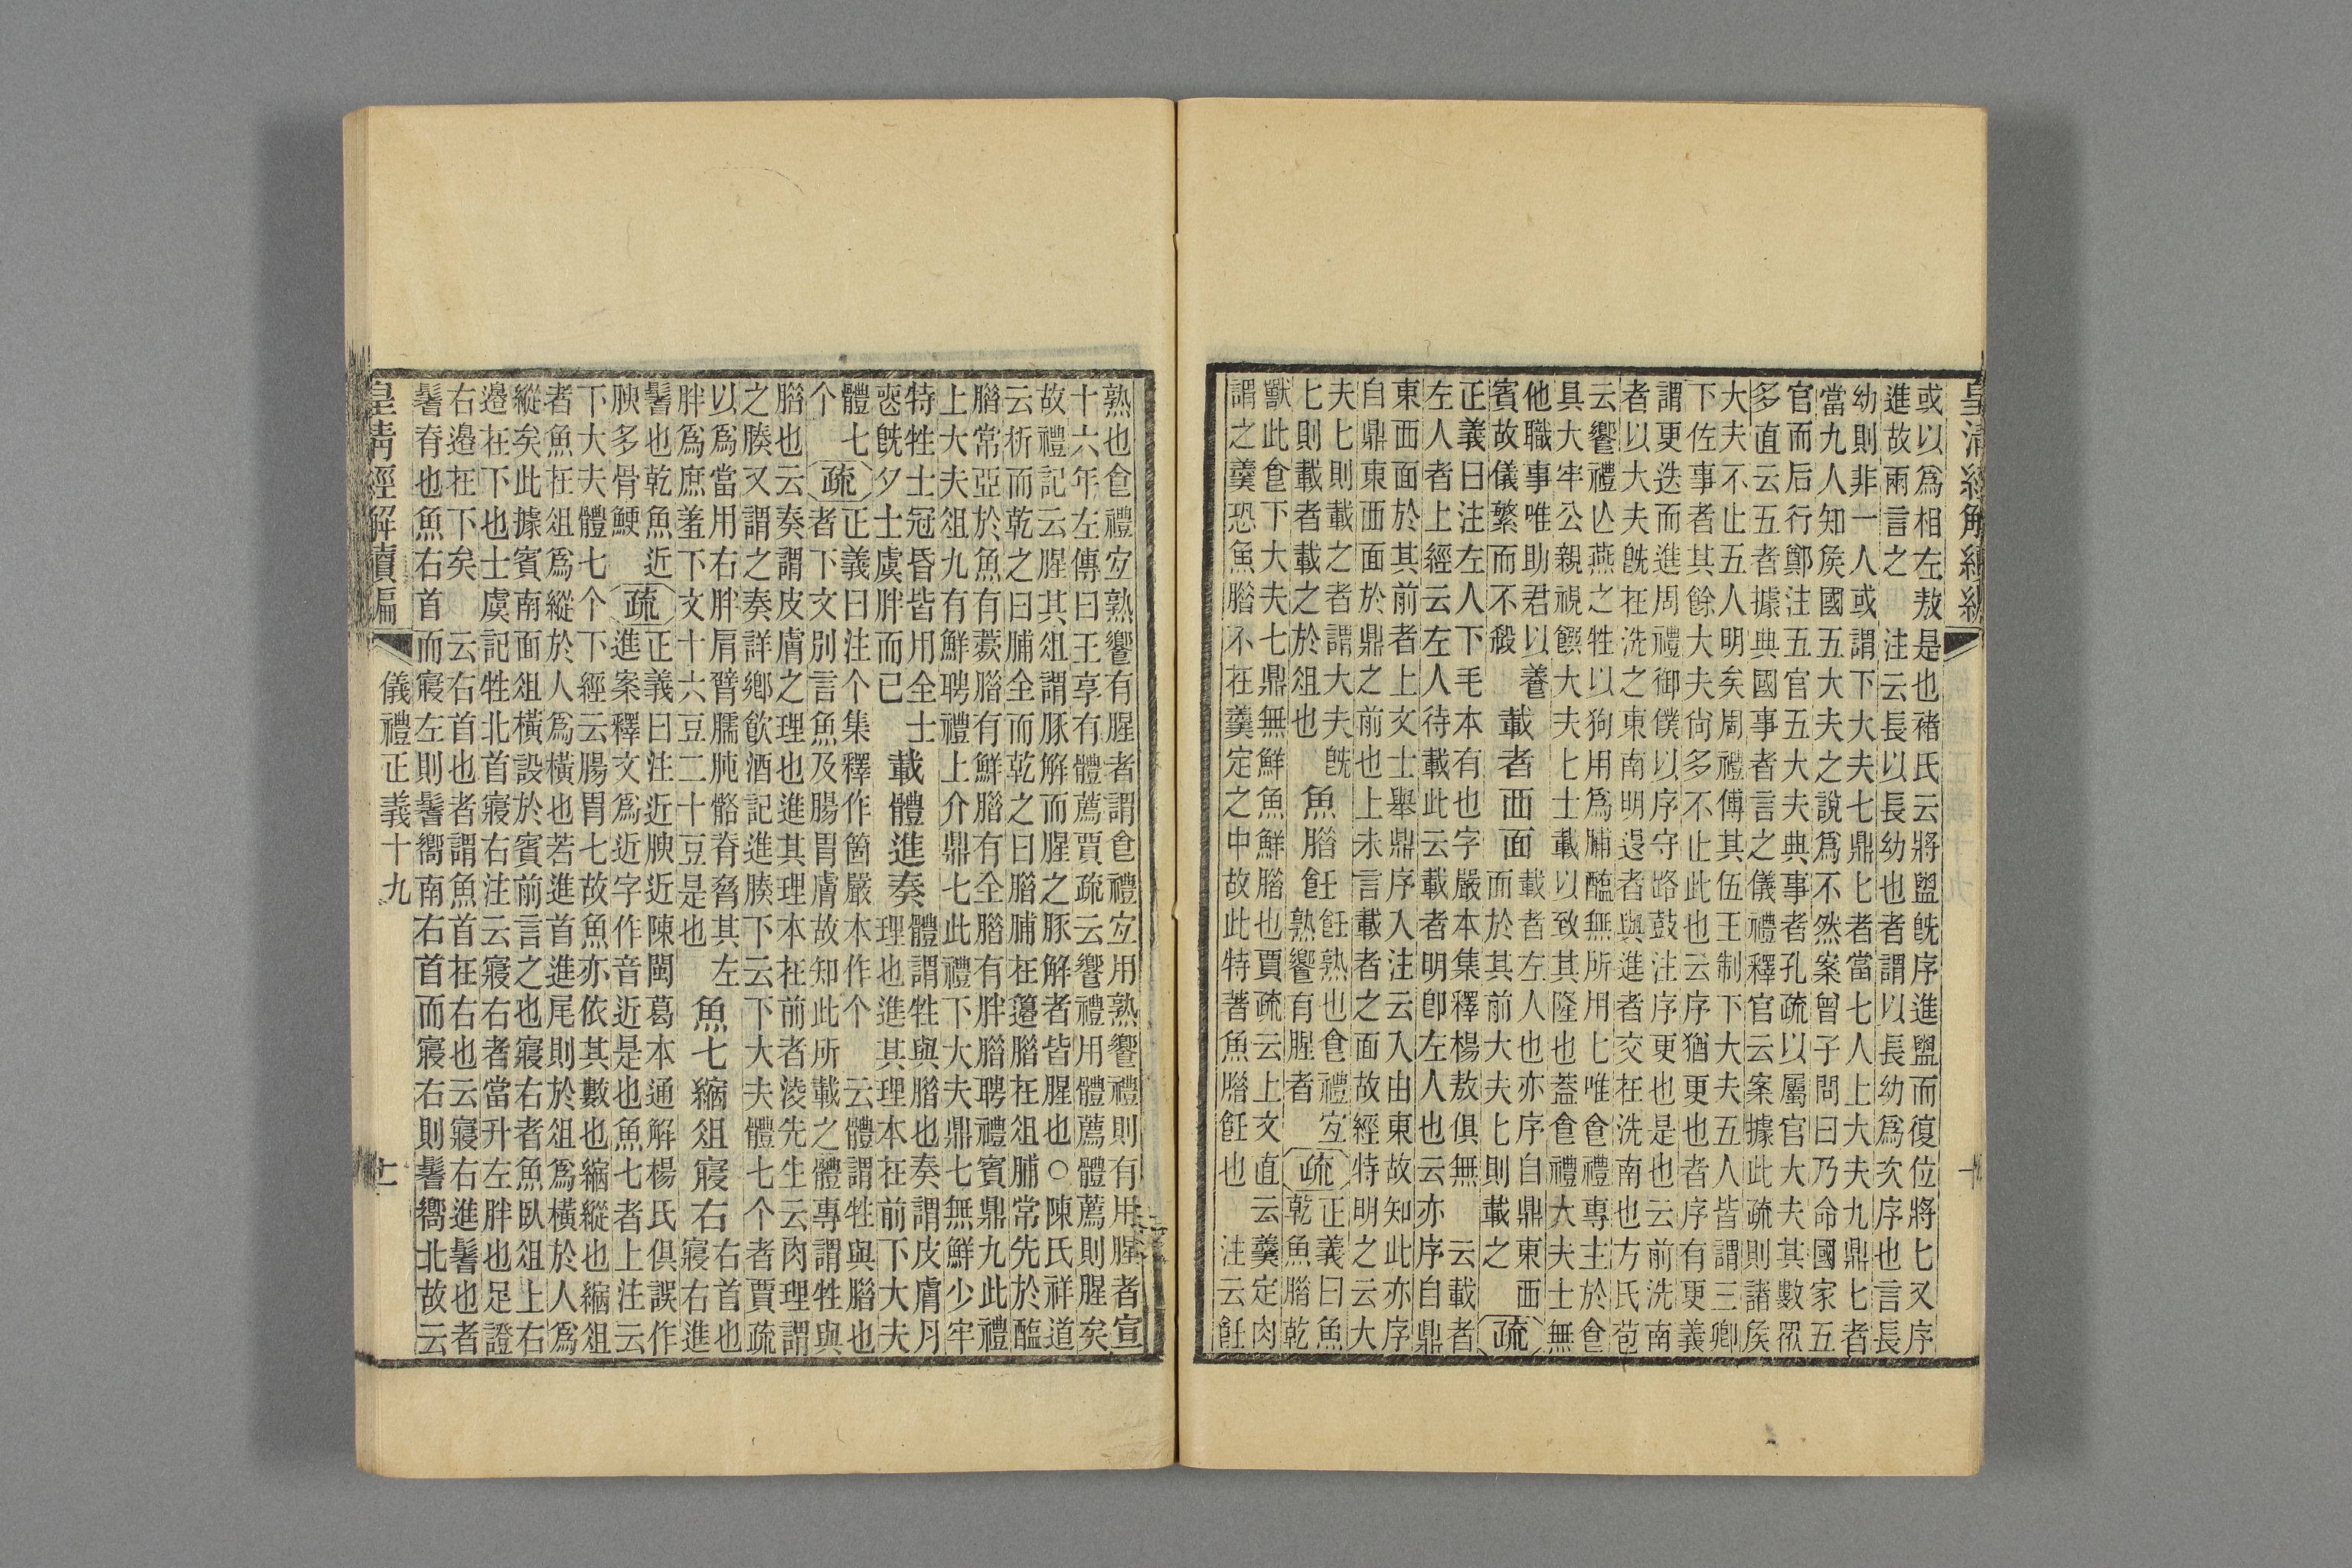 皇清經解續編
或以爲相左敖是也褚氏云將盥旣序進盥而復位將匕又序
進故兩言之 注云長以長幼也者謂以長幼爲次序也言長
幼則非一人或謂下大夫七鼎匕者當七人上大夫九鼎匕者
當九人知矦國五大夫之說爲不然案曾子問曰乃命國家五
官而后行鄭注五官五大夫典事者孔疏以屬官大夫其數眾
多直云五者據典國事者言之儀禮釋官云案據此疏則諸矦
大夫不止五人明矣周禮傅其伍王制下大夫五人皆謂三卿
下佐事者其餘大夫尙多不止此也云序猶更也者序有更義
謂更迭而進周禮御僕以序守路鼓注序更也是也云前洗南
者以大夫旣在洗之東南明遝者與進者交在洗南也方氏苞
云饗禮亾燕之牲以狗用爲脯醢無所用匕唯食禮專主於食
具大牢公親視饌大夫匕士載以致其隆也蓋食禮大夫士無
他職事唯助君以養
賓故儀繁而不殺
載者西面
載者左人也亦序自鼎東西
面於其前大夫匕則載之
疏
正義曰注左人下毛本有也字嚴本集釋楊敖俱無 云載者
左人者上經云左人待載此云載者明卽左人也云亦序自鼎
東西面於其前者上文士舉鼎序入注云入由東故知此亦序
自鼎東西面於鼎之前也上未言載者之面故經特明之云大
夫匕則載之者謂大夫旣
匕則載者載之於俎也
魚腊飪
飪熟也食禮宐
熟饗有腥者
疏
正義曰魚
乾魚腊乾
獸此食下大夫七鼎無鮮魚鮮腊也賈疏云上文直云羹定肉
謂之羹恐魚腊不在羹定之中故此特著魚腊飪也 注云飪
熟也食禮宐熟饗有腥者謂食禮宐用熟饗禮則有用腥者宣
十六年左傳曰王享有體薦賈疏云饗禮用體薦體薦則腥矣
故禮記云腥其俎謂豚解而腥之豚解者皆腥也○陳氏祥道
云析而乾之曰脯全而乾之曰腊脯在籩腊在俎脯常先於醢
腊常亞於魚有蔌腊有鮮腊有全腊有胖腊聘禮賓鼎九此禮
上大夫俎九有鮮聘禮上介鼎七此禮下大夫鼎七無鮮少牢
特牲士冠昏皆用全士
喪旣夕士虞胖而已
載體進奏
體謂牲與腊也奏謂皮膚
理也進其理本在前下大夫
體七
个
疏
正義曰注个集釋作箇嚴本作个 云體謂牲與腊也
者下文別言魚及腸胃膚故知此所載之體專謂牲與
腊也云奏謂皮膚之理也進其理本在前者淩先生云肉理謂
之腠又謂之奏詳鄕飮酒記進腠下云下大夫體七个者賈疏
以爲當用右胖肩臂臑肫骼脊脅其左
胖爲庶羞下文十六豆二十豆是也
魚七縮俎寢右
右首也
寢右進
鬐也乾魚近
腴多骨鯁
疏
正義曰注近腴近陳閩葛本通解楊氏俱誤作
進案釋文爲近字作音近是也魚七者上注云
下大夫體七个下經云腸胃七故魚亦依其數也縮縱也縮俎
者魚在俎爲縱於人爲橫也若進首進尾則於俎爲橫於人爲
縱矣此據賓南面俎橫設於賓前言之也寢右者魚臥俎上右
邉在下也士虞記牲北首寢右注云寢右者當升左胖也足證
右邉在下矣 云右首也者謂魚首在右也云寢右進鬐也者
鬐脊也魚右首而寢左則鬐嚮南右首而寢右則鬐嚮北故云
皇清經解續編
儀禮正義十九